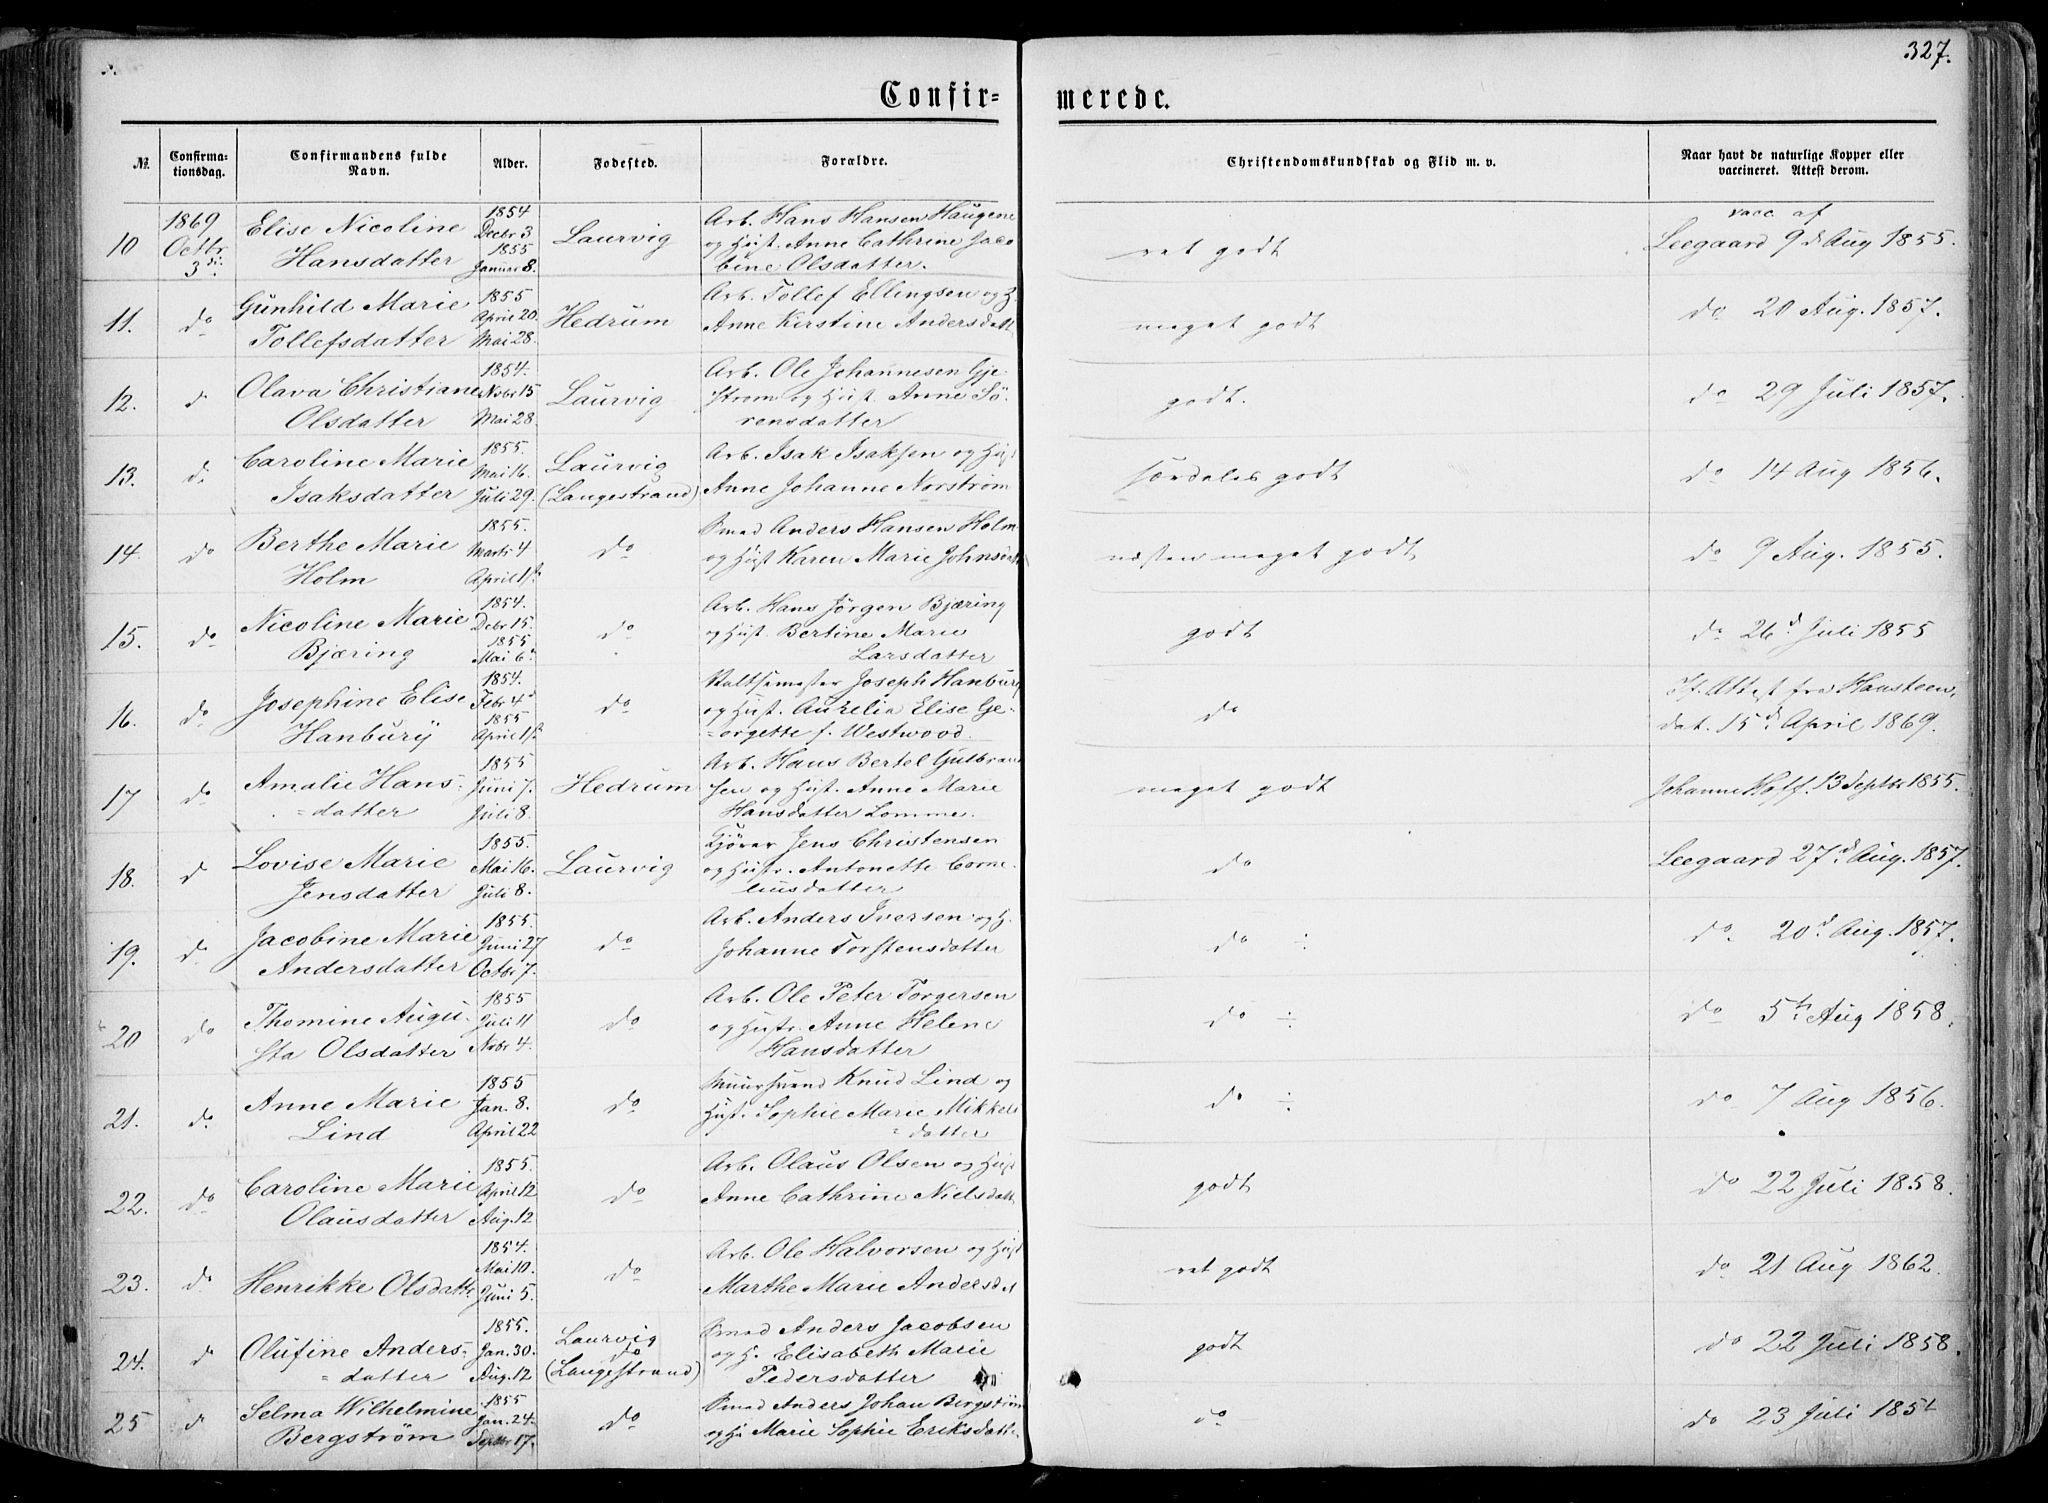 327.
Confir=
merede.
№
Confirma-
tionsdag.
Confirmandens fulde
Navn.
Alder.
Fodested.
Forældre.
Christendomskundskab og Flid m. v.
Naar havt de naturlige Kopper eller
vaccineret. Attest derom.
10
1869
Octbr.
3di.
Elise Nicoline
Hansdatter
1854
Decbr 3
1855
Januar 8.
Laurvig
Arb. Hans Hansen Haugene
og Hust. Anne Cathrine Jaco
bine Olsdatter.
ret godt
vacc. af
Leegaard 9d Aug 1855.
11.
do
Gunhild Marie
Tollefsdatter
1855
April 20.
Mai 28.
Hedrum
Arb. Tollef Ellingsen og H.
Anne Kirstine Andersdatt
meget godt
do 20 Aug. 1857.
12.
d
Olava Christiane
Olsdatter
1854.
Novbr 15
Mai 28.
Laurvig
Arb. Ole Johannesen Gje-
strom og Hust. Anne Sö-
rensdatter
godt.
do 29 Juli 1857.
13.
d.
Caroline Marie
Isaksdatter
1855.
Mai 16.
Juli 29.
Laurvig
(Langestrand)
Arb. Isak Isaksen og Hust
Anne Johanne Norstrøm
særdeles godt
do 14 Aug 1856.
14.
do
Berthe Marie
Holm
1855.
Marts 4
April 1st
do
Smed Anders Hansen Holm
og Hust Karen Marie Johnsdatt
næsten meget godt
do 9 Aug. 1855.
15.
do
Nicoline Marie
Bjæring
1854.
Debr 15.
1855
Mai 6.
do
Arb. Hans Jørgen Bjæring
og Hust. Bertine Marie
Larsdatter
godt
do 26d. Juli 1855
16.
do
Josephine Elise
Hanbury
1854.
Febr 4d
1855
April 1st
do
Joseph Hanbury
og Hust. Aurelia Elise Ge-
=orgette f. Westwood.
do
If. Attest fra Hansteen,
dat. 15d. April 1869.
17
do
Amalie Hans=
=datter
1855
Juni 7.
Juli 8.
Hedrum
Arb. Hans Bertel Gulbrand
sen og Hust. Anne Marie
Hansdatter Lomme.
meget godt
Johanne Hoff. 13 Septbr 1855.
18.
d
Lovise Marie
Jensdatter
1855.
Mai 16.
Juli 8.
Laurvig
Kjörer Jens Christensen
og Hustr. Antonette Corne
liusdatter
do
Leegaard 27d. Aug. 1857.
19.
d.
Jacobine Marie
Andersdatter
1855.
Juni 27
Octbr 7.
do
Arb. Anders Iversen og H.
Johanne Torstensdatter
do ÷
do. 20d. Aug. 1857.
20
do
Thomine Augu-
sta Olsdatter
1855
Juli 11
Nobr 4.
do
Arb. Ole Peter Torgersen
og Hustr. Anne Helene
Hansdatter
do ÷
do 5te Aug 1858.
21.
do
Anne Marie
Lind
1855
Jan. 8.
April 22
do
Muursvend Knud Lind og
Hust. Sophie Marie Mikkels
=datter
do ÷
do 7 Aug 1856.
22.
do
Caroline Marie
Olausdatter
1855.
April 12
Aug. 12
do
Arb. Olaus Olsen og Hust
Anne Cathrine Nielsdatt
godt
do 22 Juli 1858.
23.
d
Henrikke Olsdattr.
1854.
Mai 10.
Juni 5.
do
Arb. Ole Halvorsen og Hust
Marthe Marie Andersdat
ret godt
do 21 Aug 1862.
24.
d
Olufine Anders=
=datter
1855.
Jan. 30.
Aug. 12
Laurvig
do
(Langestrand)
Smed Anders Jacobsen
og H. Elisabeth Marie
Pedersdatter
godt
do 22 Juli 1858.
25
d
Selma Wilhelmine
Bergstrøm
1855
Jan. 24.
Septbr 17.
do
Smed Anders Johan Bergstrøm
og Hu Marie Sophie Eriksdatte
do
do 23 Juli